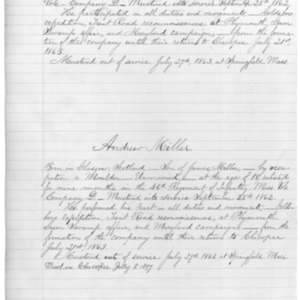 Vols. Company D — Mustered into service September 25th 1862
He participated in all duties and movements — Goldsboro
expedition, Trent Road reconnoissance, at Plymouth, Gum
Swamp affair, and Maryland campaign — from the forma-
tion of the company until their return to Chicopee July 21st
1863.
Mustered out of service July 29th 1863 at Springfield, Mass
Andrew Miller
Born in Glasgow, Scotland — Son of James Miller — by occu-
pation a Moulder — Unmarried — at the age of 18 enlisted
for nine months in the 46th Regiment of Infantry, Mass. Vols
Company D — Mustered into service September 25th 1862
He performed his part in all duties and movements — Golds-
boro expedition, Trent Road reconnoissance, at Plymouth
Gum Swamp affair, and Maryland campaign — from the
formation of the company until their return to Chicopee
July 21st 1863.
Mustered out of service July 29th 1863 at Springfield Mass
Died in Chicopee July